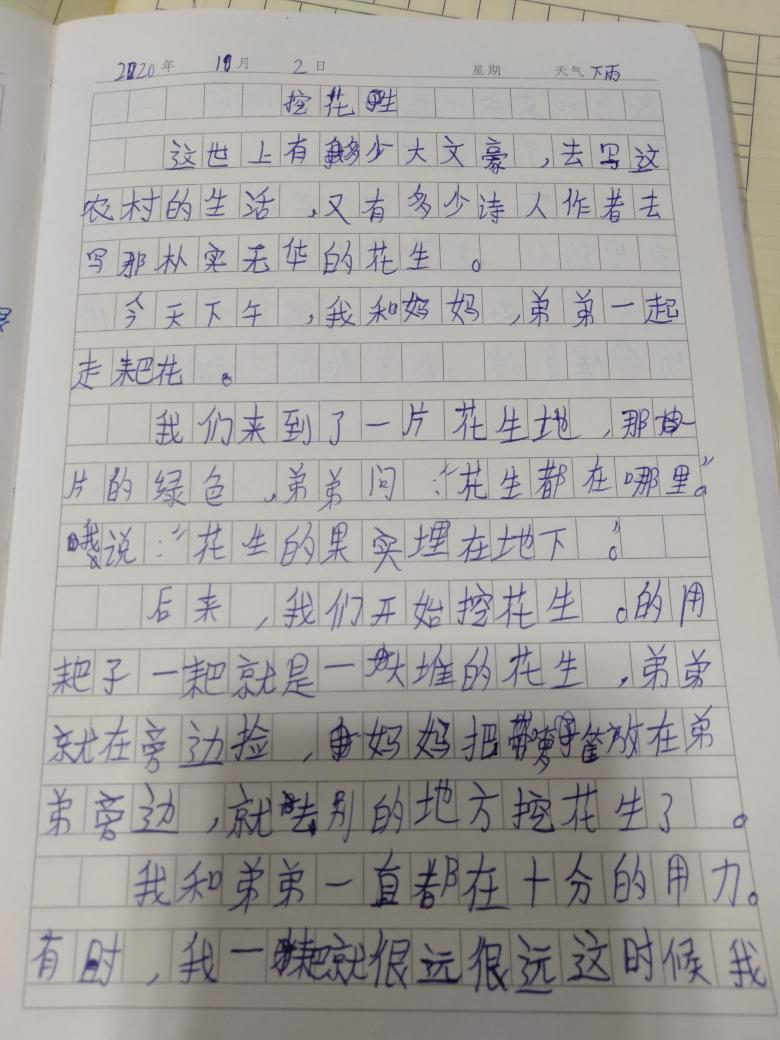 2020年 10月 2日 星期 天气 下雨
挖花生
这世上有多少大文豪，去写这
农村的生活，又有多少诗人作者去
写那朴实无华的花生。
今天下午，我和妈妈，弟弟一起
走耙花。
我们来到了一片花生地，那一
片的绿色，弟弟问：“花生都在哪里”。
我说：“花生的果实埋在地下”。
后来，我们开始挖花生。的用
耙子一耙就是一大堆的花生，弟弟
就在旁边捡，妈妈把筐放在弟
弟旁边，就去别的地方挖花生了。
我和弟弟一直都在十分的用力。
有时，我一耙就很远很远这时候我